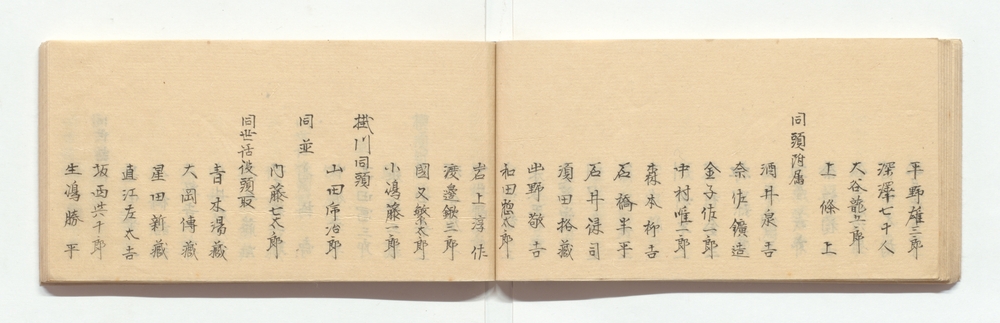 平野雄三郎
深澤七十人
大谷龍五郎
上條上
同頭附属
酒井泉吉
奈佐鑛造
金子佐一郎
中村惟一郎
森本柳吉
石橋半平
石井保司
須田格藏
出野敬吉
和田惣太郎
岩上淳作
渡邊鍬三郎
國又繁太郎
小嶋藤一郎
掛川同頭
山田常治郎
同並
内藤七太郎
同世話役頭取
青木湯藏
大岡傳藏
星田新藏
直江左太吉
坂西共千郎
生嶋勝平